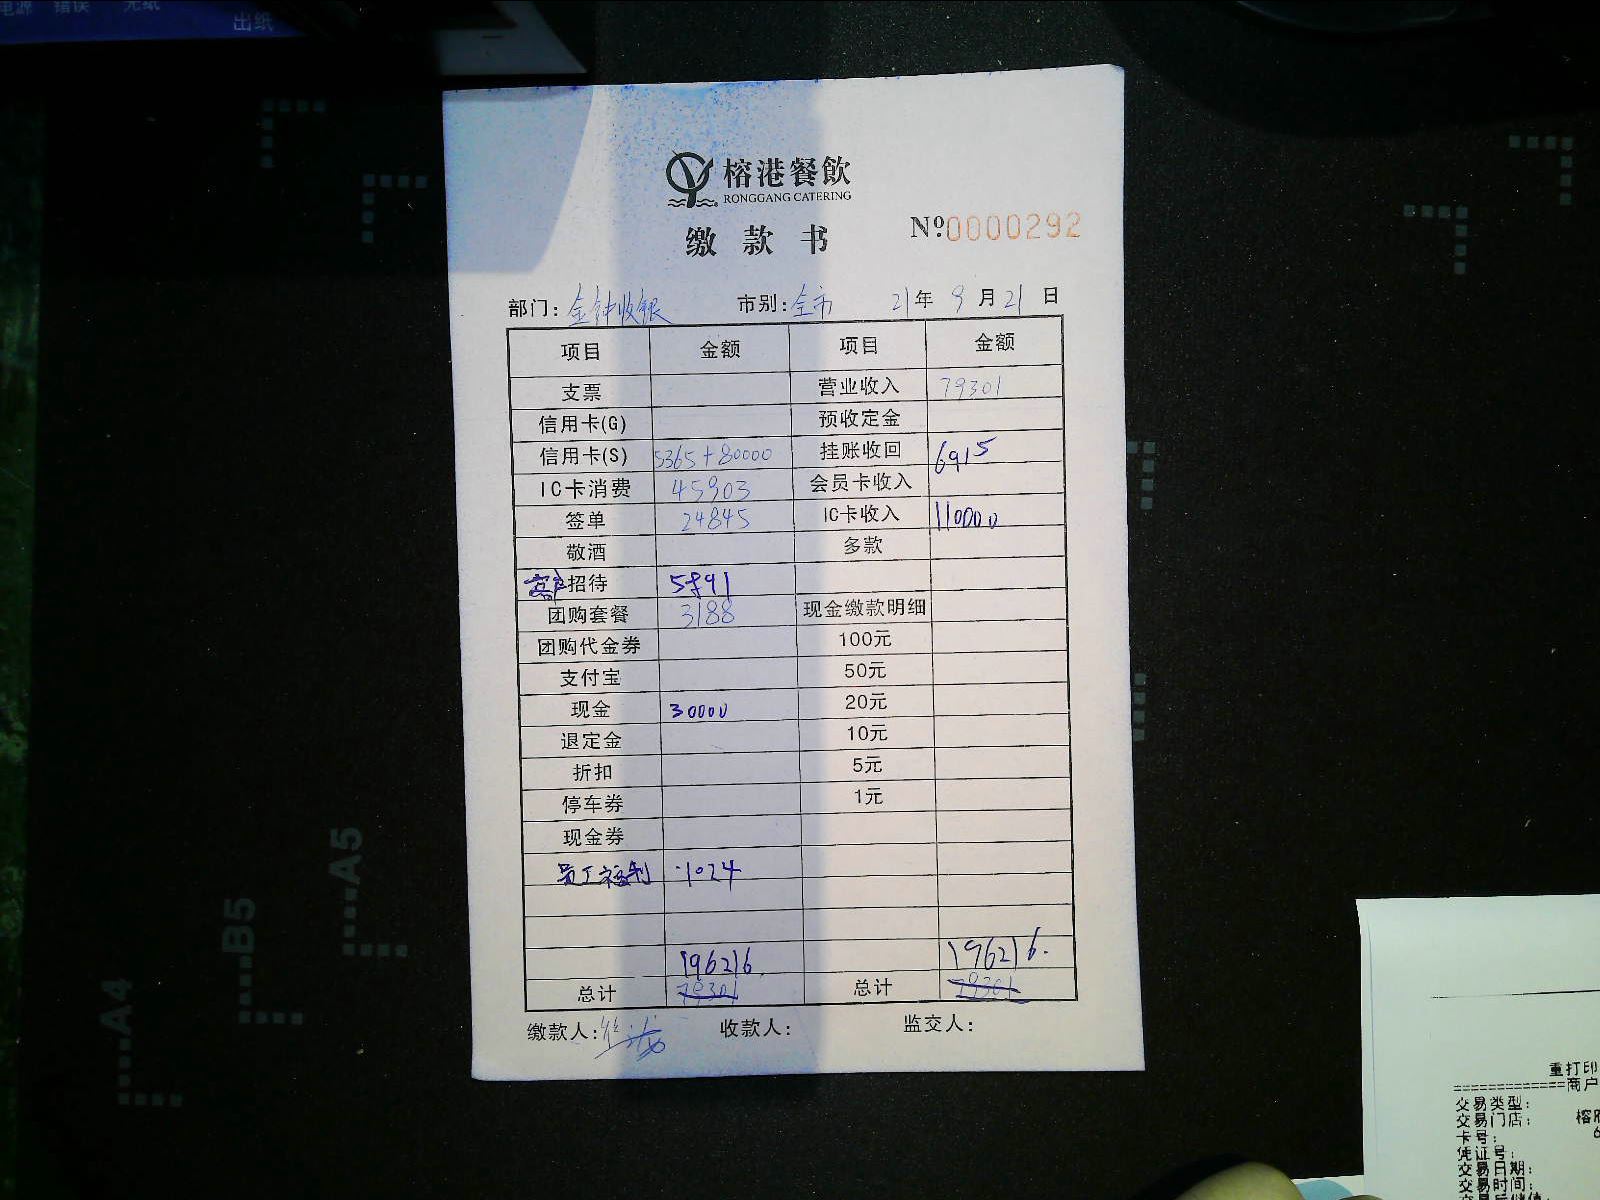 电源 错误 无纸
出纸
榕港餐飲
RONGGANG CATERING
缴款书
Nº0000292
部门: 金钟收银 市别: 全市 21年 9月 21日
项目 金额 项目 金额
支票 营业收入 79301
信用卡(G) 预收定金
信用卡(S) 5365+80000 挂账收回 6915
IC卡消费 45903 会员卡收入
签单 24845 IC卡收入 110000
敬酒 多款
客户招待 5891
团购套餐 3188 现金缴款明细
团购代金券 100元
支付宝 50元
现金 30000 20元
退定金 10元
折扣 5元
停车券 1元
现金券
员工福利 1024
196216 196216.
总计 79301 总计 79301
缴款人: 收款人: 监交人:
A5
B5
A4
重打印
=============商户
交易类型:
交易门店: 榕
卡号: 6
凭证号:
交易日期:
交易时间: